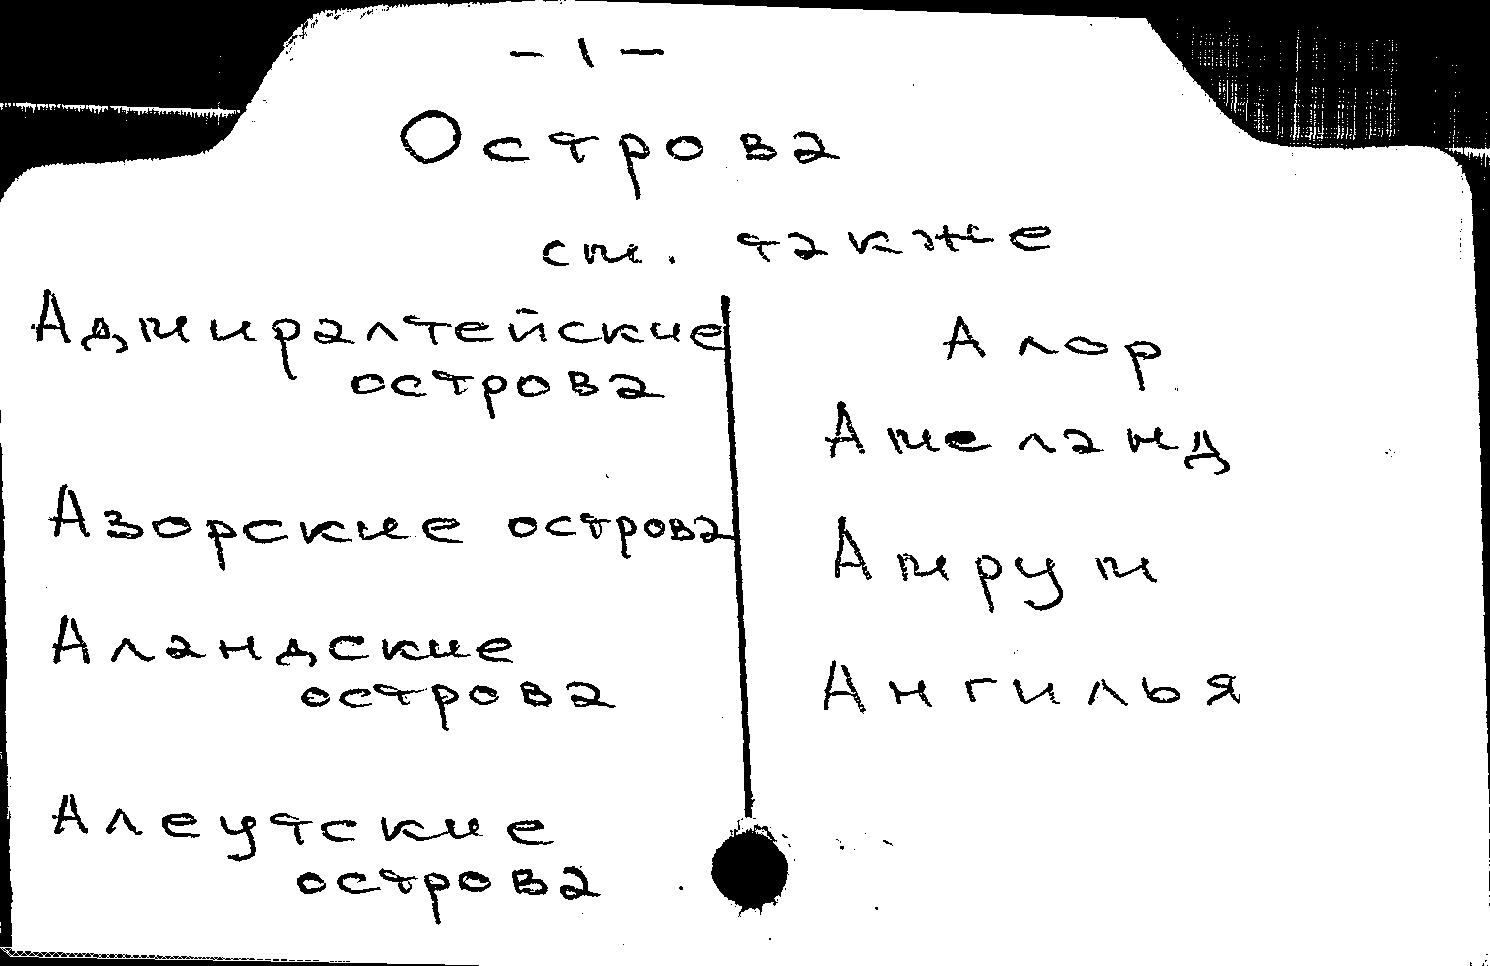 - 1 -
Острова
см. также
Адмиралтейские
острова
Азорские острова
Аландские
острова
Алеутские
острова
Алор
Амеланд
Амрум
Ангилья